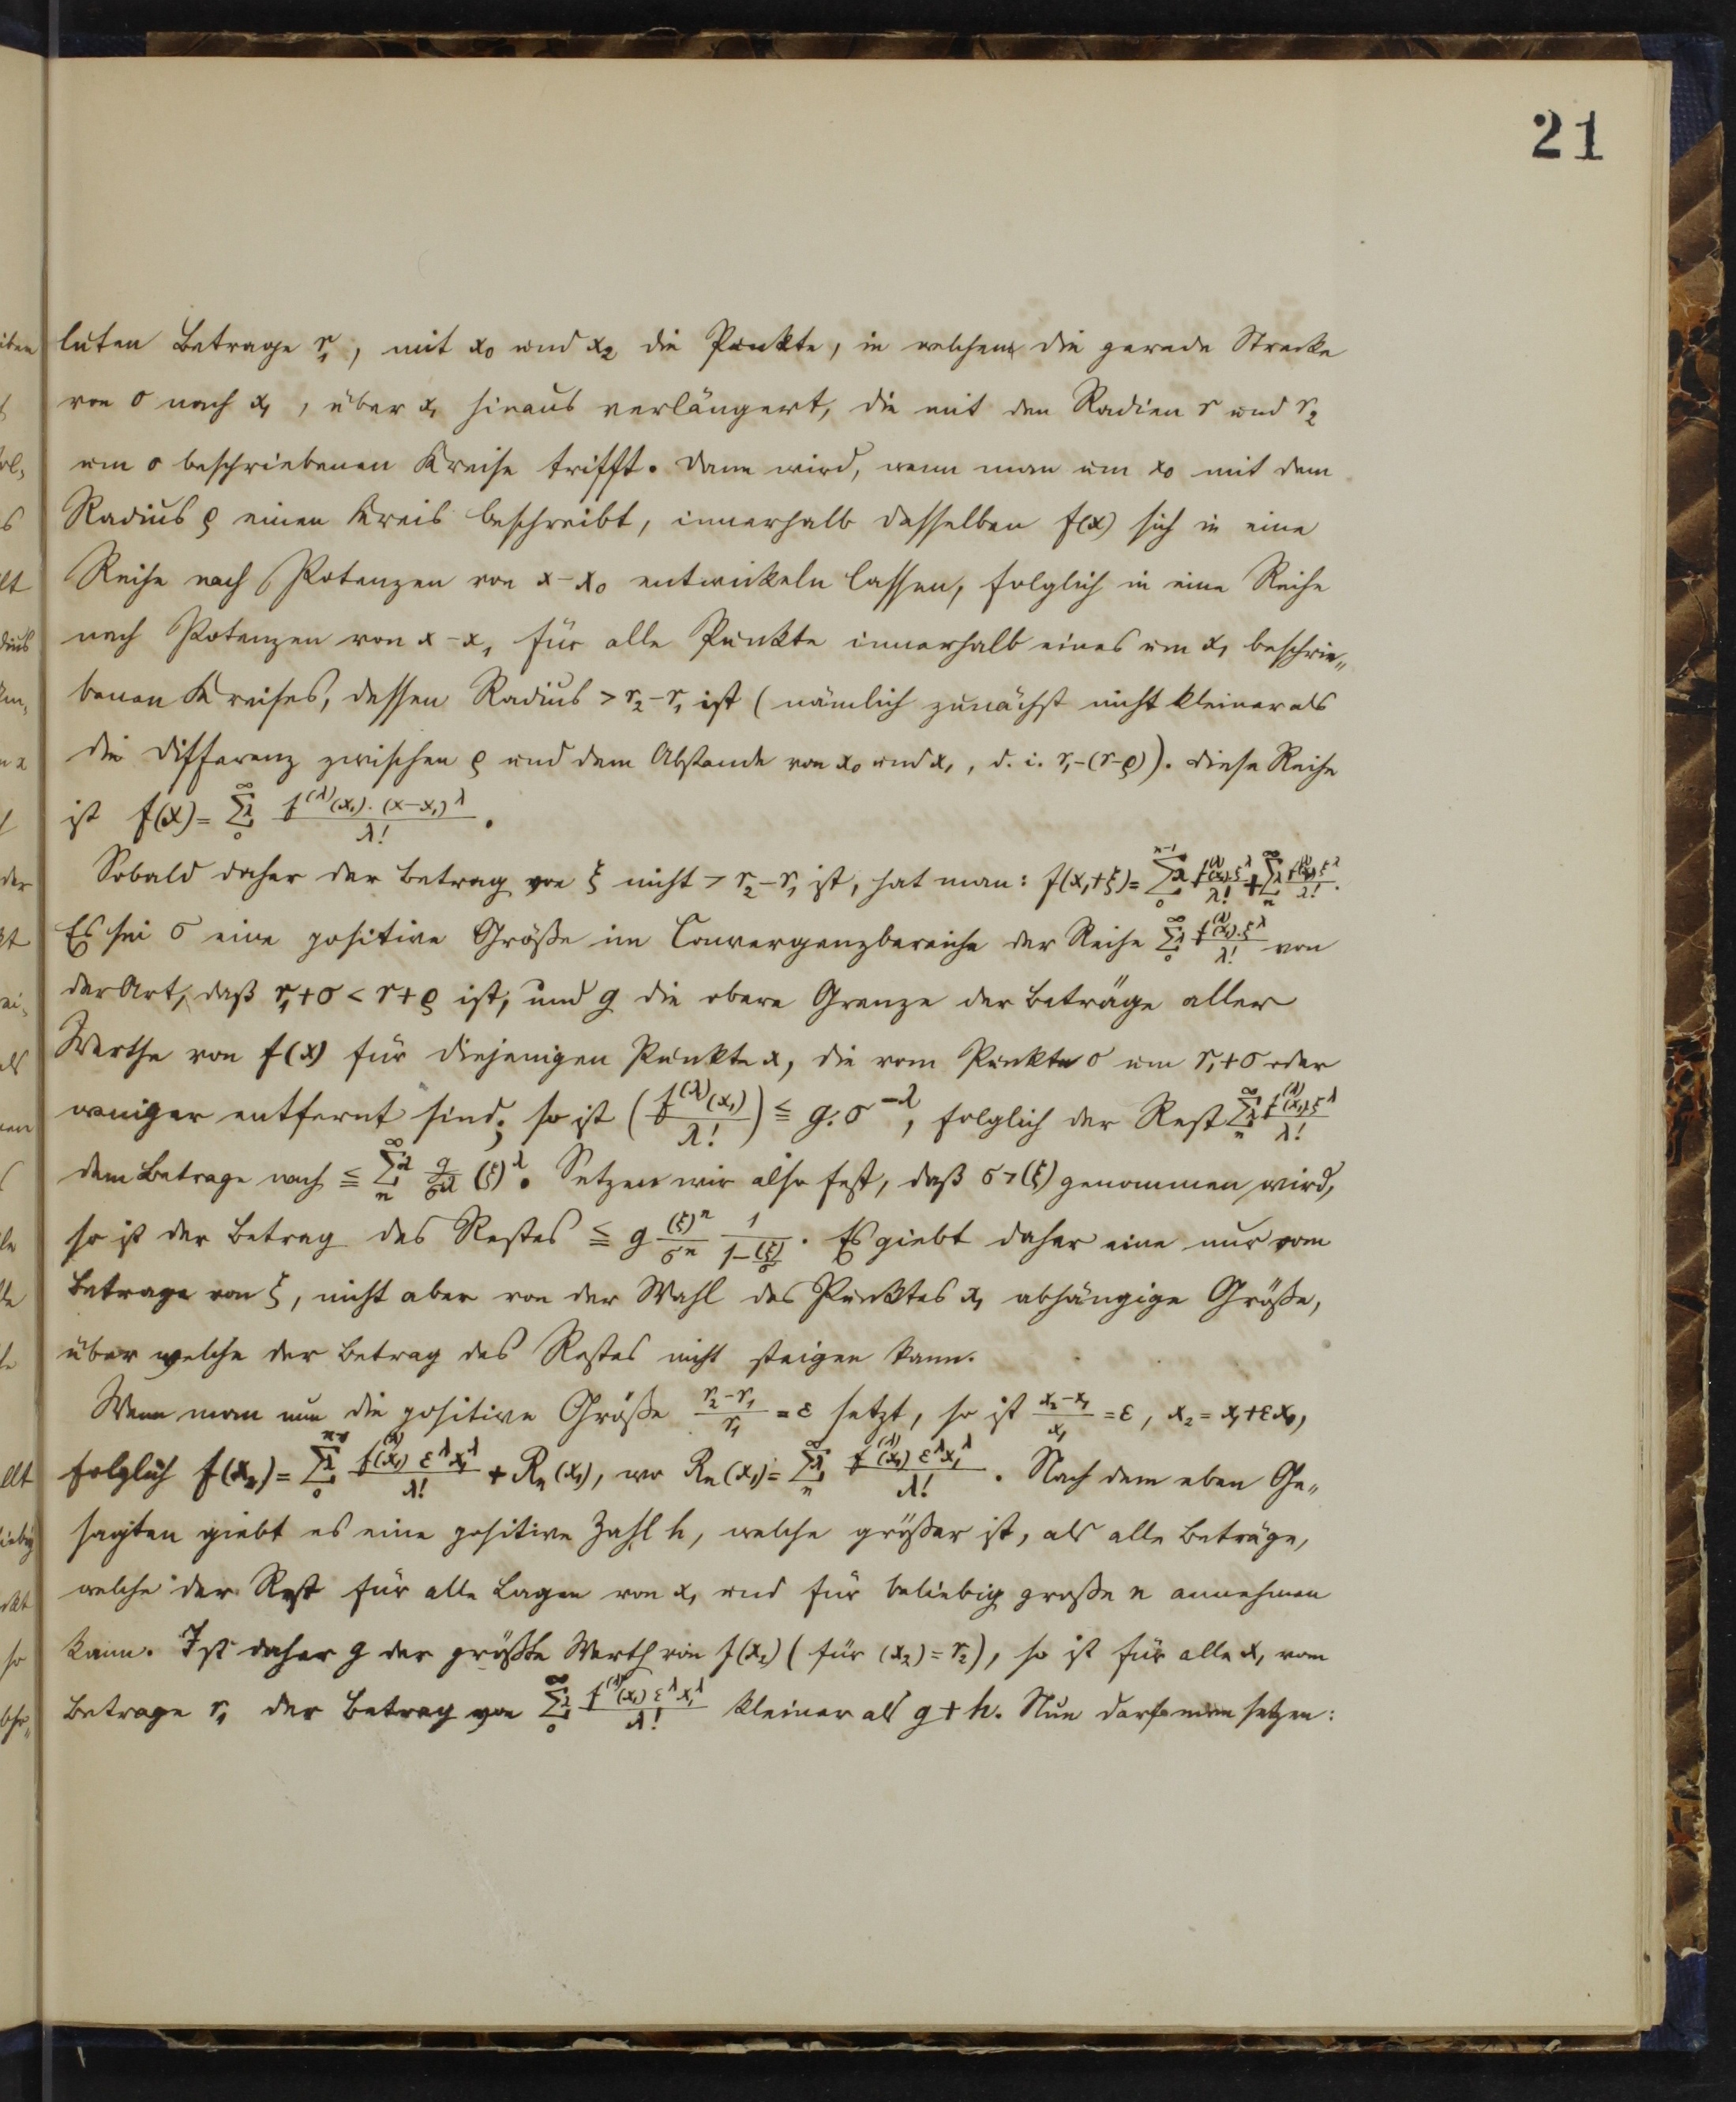 21
luten Betrage r₁, mit x₀ und x₂ die Punkte, in welchen die gerade Strecke
von 0 nach x₁, über x₁ hinaus verlängert, die mit den Radien r und r₂
um 0 beschriebenen Kreise trifft. Dann wird, wenn man um x₀ mit dem
Radius ρ einen Kreis beschreibt, innerhalb desselben f(x) sich in eine
Reihe nach Potenzen von x-x₀ entwickeln lassen, folglich in eine Reihe
nach Potenzen von x-x₁ für alle Punkte innerhalb eines um x₁ beschrie„
benen Kreises, dessen Radius > r₂-r₁ ist (nämlich zunächst nicht kleiner als
die Differenz zwischen ρ und dem Abstande von x₀ und x₁, d. i. r₁-(r-ρ)). Diese Reihe
ist f(x) = ∑_0^∞ λ f^(λ)(x₁).(x-x₁)^λ / λ! .
Sobald daher der Betrag von ξ nicht > r₂-r₁ ist, hat man: f(x₁+ξ) = ∑_0^{n-1} λ f^(λ)(x₁) ξ^λ / λ! + ∑_n^∞ λ f^(λ)(x₁) ξ^λ / λ! .
Es sei σ eine positive Größe im Convergenzbereiche der Reihe ∑_0^∞ λ f^(λ)(x₁).ξ^λ / λ! von
der Art, daß r₁+σ < r+ρ ist, und g die obere Grenze der Beträge aller
Werthe von f(x) für diejenigen Punkte x, die vom Punkte 0 um r₁+σ oder
weniger entfernt sind; so ist (f^(λ)(x₁) / λ!) ≦ g.σ^{-λ}, folglich der Rest ∑_n^∞ λ f^(λ)(x₁) ξ^λ / λ!
dem Betrage nach ≦ ∑_n^∞ λ g/σ^λ (ξ)^λ. Setzen wir also fest, daß σ > (ξ) genommen wird,
so ist der Betrag des Restes ≦ g (ξ)^n/σ^n 1/(1-(ξ)/σ). Es giebt daher eine nur vom
Betrage von ξ, nicht aber von der Wahl des Punktes x₁ abhängige Größe,
über welche der Betrag des Restes nicht steigen kann.
Wenn man nun die positive Größe (r₂-r₁)/r₁ = ε setzt, so ist (x₂-x₁)/x₁ = ε, x₂ = x₁+εx₁,
folglich f(x₂) = ∑_0^{n-1} λ f^(λ)(x₁) ε^λ x₁^λ / λ! + Rₙ(x₁), wo Rₙ(x₁) = ∑_n^∞ λ f^(λ)(x₁) ε^λ x₁^λ / λ! . Nach dem eben Ge„
sagten giebt es eine positive Zahl h, welche größer ist, als alle Beträge,
welche der Rest für alle Lagen von x₁ und für beliebig große n annehmen
kann. Ist daher g der größte Werth von f(x₂) (für (x₂) = r₂), so ist für alle x₁ vom
Betrage r₁ der Betrag von ∑_0^∞ λ f^(λ)(x₁) ε^λ x₁^λ / λ! kleiner als g + h. Nun darf man setzen: